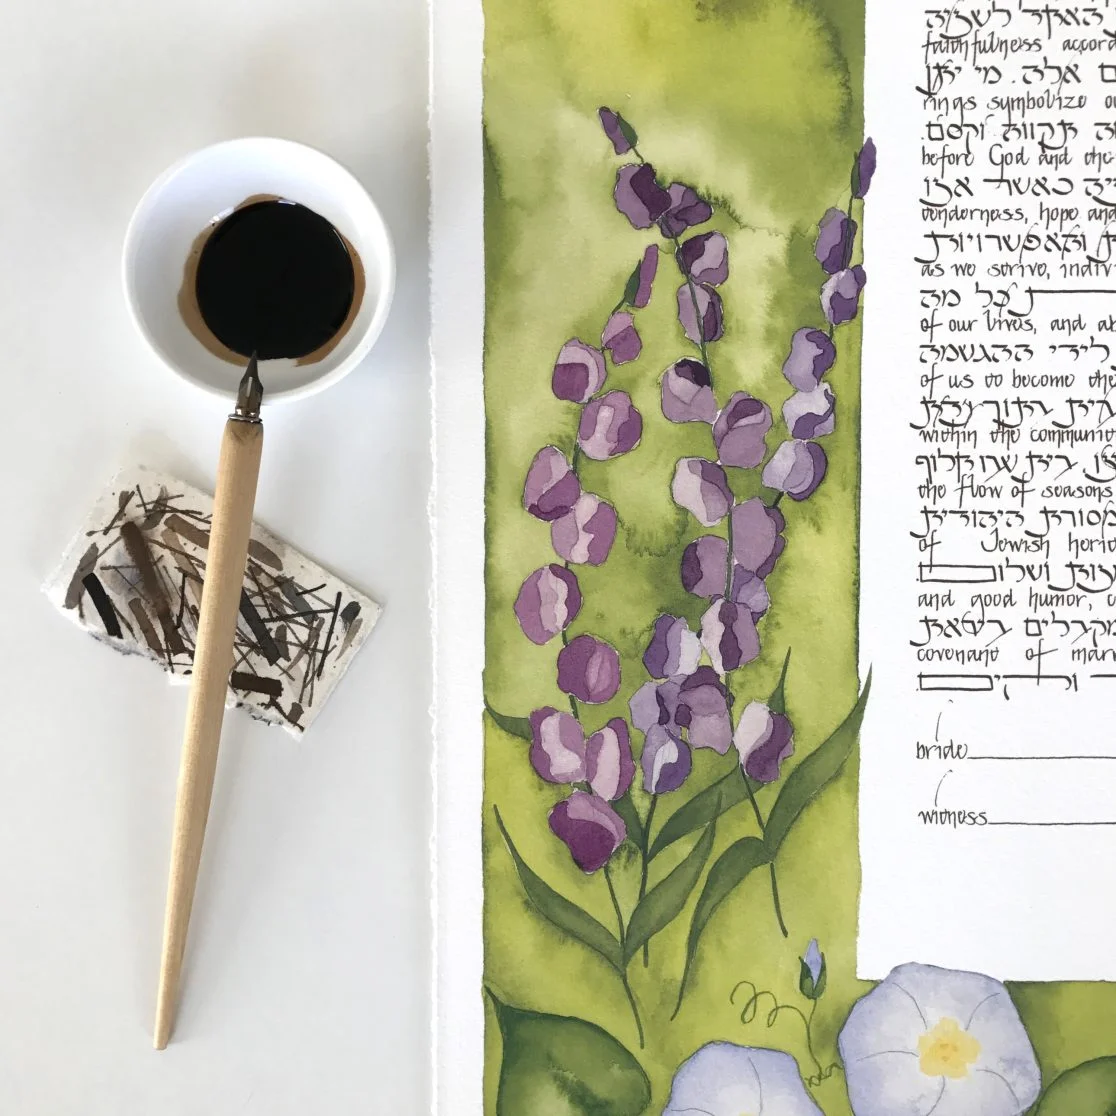 האקד לשניה
faithfulness accord
ם אלה. מי יתן
rings symbolize ou
ה תקווה וקסם.
before God and the
יה כאשר אנו
tenderness, hope and
ת והאפשרויות
as we strive, indiv
כל מה
of our lives, and ab
לידי ההגשמה
of us to become the
בית בתוך
within the communit
בית
the flow of seasons
מסורת היהודית
of Jewish herit
ושלום
and good humor, c
מקבלים בזאת
covenant of marr
bride
witness